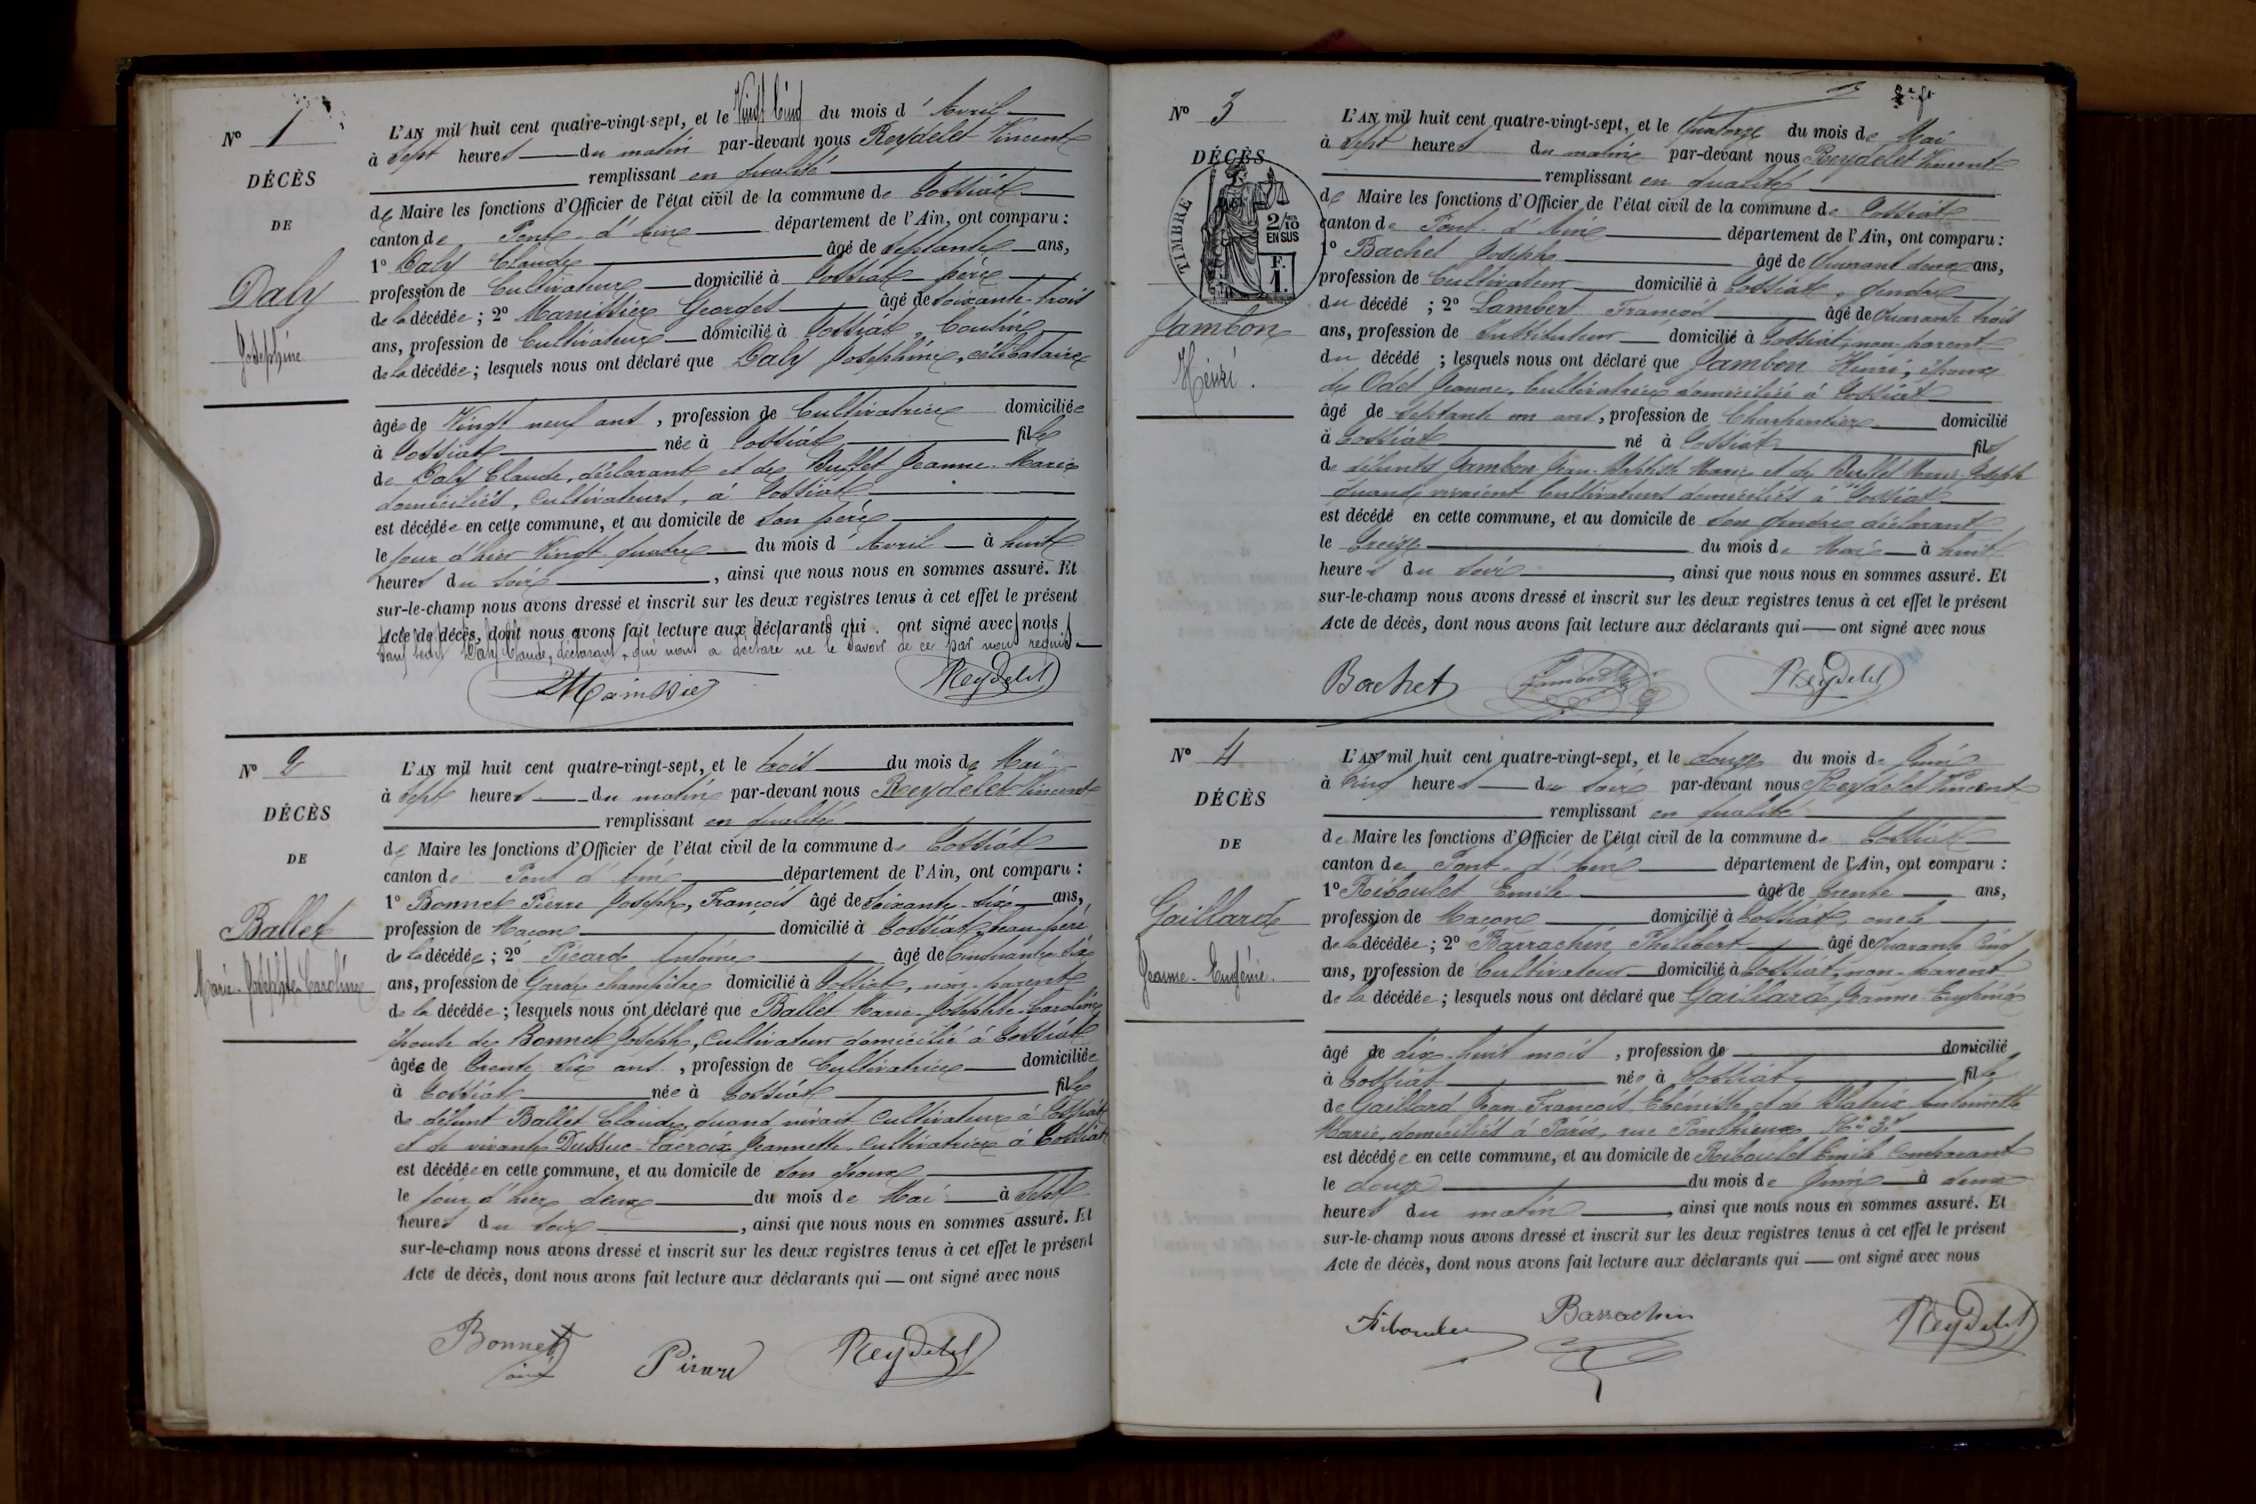 N° 1
DÉCÈS
DE
Daly
Joséphine
L'AN mil huit cent quatre-vingt-sept, et le Vingt Cinq du mois d'Avril
à Sept heures du matin par-devant nous Reydelet Vincent
remplissant en qualité
de Maire les fonctions d'Officier de l'état civil de la commune de Bossiat
canton de Pont-d'Ain département de l'Ain, ont comparu :
1° Daly Claude âgé de septante ans,
profession de Cultivateur domicilié à Bossiat père
de la décédée ; 2° Manissier Georges âgé de soixante-trois
ans, profession de Cultivateur domicilié à Bossiat, Cousin
de la décédée ; lesquels nous ont déclaré que Daly Joséphine, célibataire
âgée de Vingt neuf ans, profession de Cultivatrice domiciliée
à Bossiat née à Bossiat fille
de Daly Claude, déclarant et de Buffet Jeanne-Marie
domiciliés, cultivateurs, à Bossiat
est décédée en cette commune, et au domicile de son père
le jour d'hier Vingt quatre du mois d'Avril à huit
heures du soir, ainsi que nous nous en sommes assuré. Et
sur-le-champ nous avons dressé et inscrit sur les deux registres tenus à cet effet le présent
Acte de décès, dont nous avons fait lecture aux déclarants qui ont signé avec nous
sauf Daly Claude, déclarant, qui nous a déclaré ne le savoir de ce par nous requis
Mainssier Reydelet
N° 2
DÉCÈS
DE
Ballet
Marie-Josephte-Caroline
L'AN mil huit cent quatre-vingt-sept, et le trois du mois de Mai
à Sept heures du matin par-devant nous Reydelet Vincent
remplissant en qualité
de Maire les fonctions d'Officier de l'état civil de la commune de Bossiat
canton de Pont d'Ain département de l'Ain, ont comparu :
1° Bonnet Pierre Joseph, François âgé de soixante-six ans,
profession de Maçon domicilié à Bossiat, beau-père
de la décédée ; 2° Picard Antoine âgé de Cinquante-six
ans, profession de Garde champêtre domicilié à Bossiat, non-parent
de la décédée ; lesquels nous ont déclaré que Ballet Marie-Josephte-Caroline
épouse de Bonnet Joseph, cultivateur domicilié à Bossiat
âgée de trente six ans, profession de Cultivatrice domiciliée
à Bossiat née à Bossiat fille
de défunt Ballet Claude, quand vivait cultivateur à Bossiat
et de vivante Dussuc-Lacroix Jeannette, cultivatrice à Bossiat
est décédée en cette commune, et au domicile de son époux
le jour d'hier deux du mois de Mai à Sept
heures du soir, ainsi que nous nous en sommes assuré. Et
sur-le-champ nous avons dressé et inscrit sur les deux registres tenus à cet effet le présent
Acte de décès, dont nous avons fait lecture aux déclarants qui ont signé avec nous
Bonnet Picard Reydelet
N° 3
DÉCÈS
TIMBRE
2/10
EN SUS
F.
1.
Jambon
Henri.
L'AN mil huit cent quatre-vingt-sept, et le Quatorze du mois de Mai
à Sept heures du matin par-devant nous Reydelet Vincent
remplissant en qualité
de Maire les fonctions d'Officier de l'état civil de la commune de Bossiat
canton de Pont-d'Ain département de l'Ain, ont comparu :
1° Bachet Joseph âgé de Quarant deux ans,
profession de Cultivateur domicilié à Bossiat, gendre
du décédé ; 2° Lambert François âgé de Quarante trois
ans, profession de Instituteur domicilié à Bossiat, non-parent
du décédé ; lesquels nous ont déclaré que Jambon Henri, époux
de Odet Jeanne, Cultivatrice domiciliée à Bossiat
âgé de septante un ans, profession de Charpentier domicilié
à Bossiat né à Bossiat fils
de défunts Jambon Jean-Baptiste Marie et de Buffet Marie-Joseph
quand vivaient Cultivateurs domiciliés à Bossiat
est décédé en cette commune, et au domicile de son gendre déclarant
le treize du mois de Mai à huit
heures du soir, ainsi que nous nous en sommes assuré. Et
sur-le-champ nous avons dressé et inscrit sur les deux registres tenus à cet effet le présent
Acte de décès, dont nous avons fait lecture aux déclarants qui ont signé avec nous
Bachet Lambert Reydelet
N° 4
DÉCÈS
DE
Gaillard
Jeanne-Eugénie.
L'AN mil huit cent quatre-vingt-sept, et le douze du mois de Juin
à Cinq heures du soir par-devant nous Reydelet Vincent
remplissant en qualité
de Maire les fonctions d'Officier de l'état civil de la commune de Bossiat
canton de Pont-d'Ain département de l'Ain, ont comparu :
1° Riboulet Emile âgé de trente ans,
profession de Maçon domicilié à Bossiat, oncle
de la décédée ; 2° Barrachin Philibert âgé de Quarante Cinq
ans, profession de Cultivateur domicilié à Bossiat, non-parent
de la décédée ; lesquels nous ont déclaré que Gaillard Jeanne-Eugénie
âgé de dix-huit mois, profession de domicilié
à Bossiat née à Bossiat fille
de Gaillard Jean-François, Ebéniste et de Blatrix Antoinette
Marie, domiciliés à Paris, rue Ponthieux N° 37
est décédée en cette commune, et au domicile de Riboulet Emile comparant
le douze du mois de Juin à deux
heures du matin, ainsi que nous nous en sommes assuré. Et
sur-le-champ nous avons dressé et inscrit sur les deux registres tenus à cet effet le présent
Acte de décès, dont nous avons fait lecture aux déclarants qui ont signé avec nous
Riboulet Barrachin Reydelet